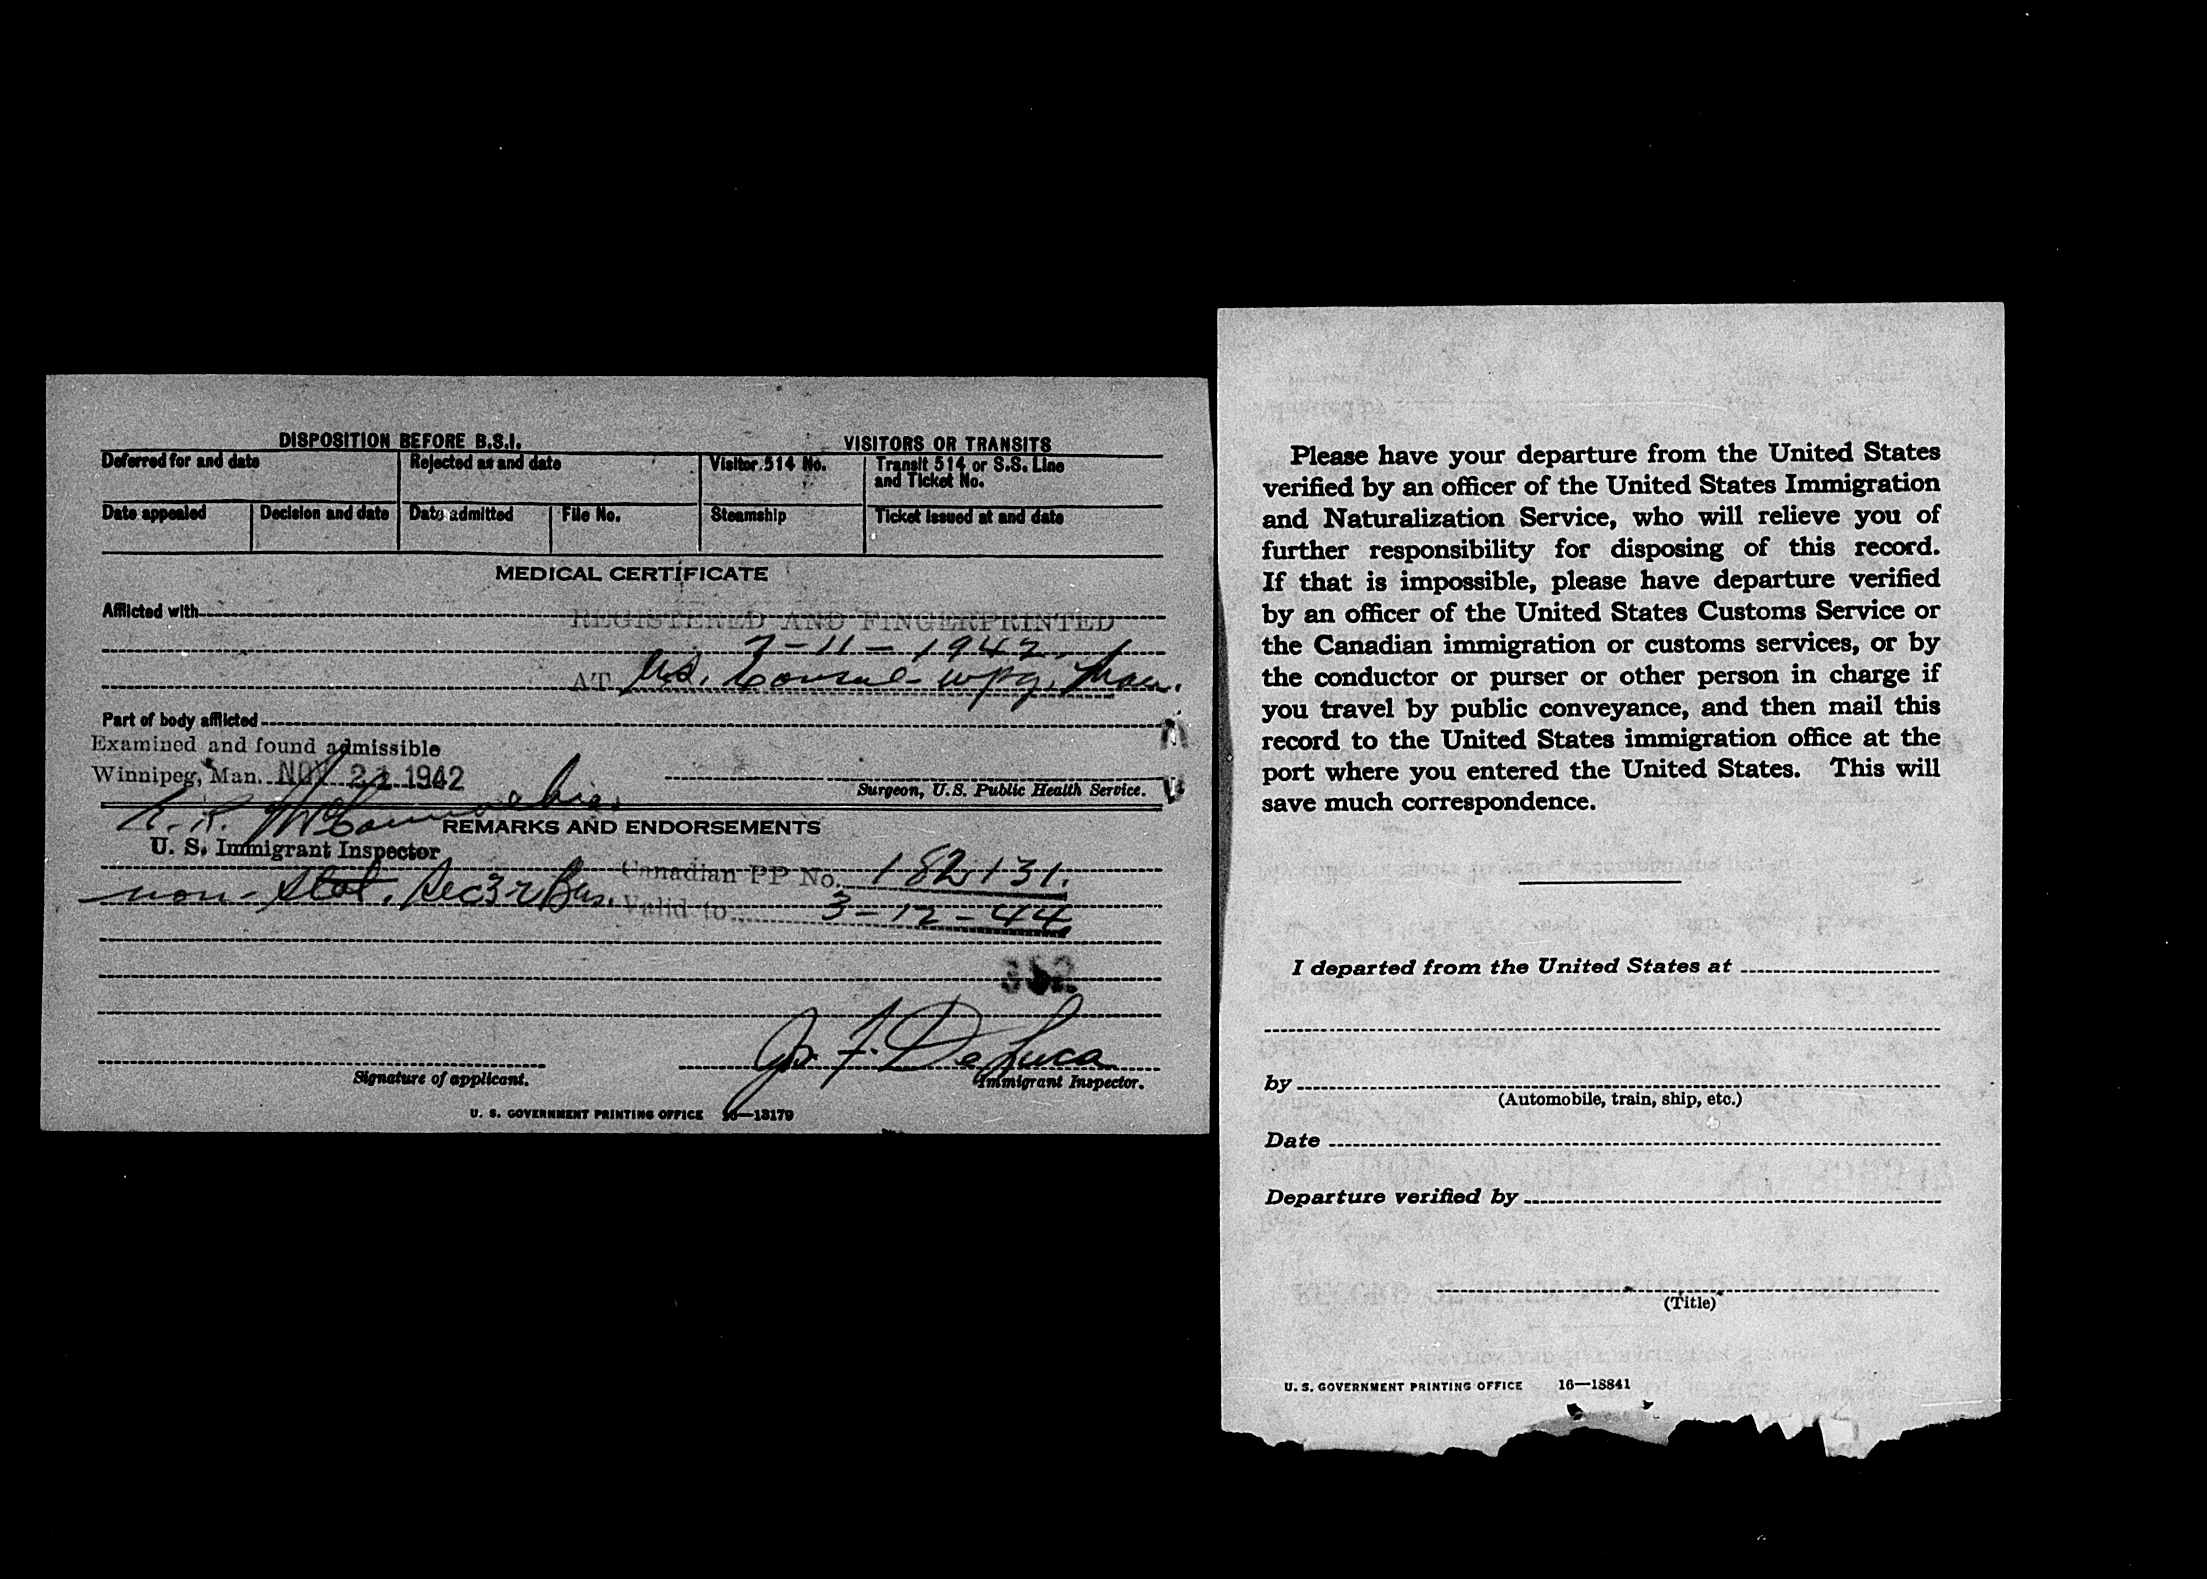 DISPOSITION BEFORE B.S.I.
VISITORS OR TRANSITS
Deferred for and date
Rejected as and date
Visitor 514 No.
Transit 514 or S.S. Line
and Ticket No.
Date appealed
Decision and date
Date admitted
File No.
Steamship
Ticket issued at and date
MEDICAL CERTIFICATE
Afflicted with
REGISTERED AND FINGERPRINTED
7-11-1942
AT U.S. Consul - Wpg. Man.
Part of body afflicted
Examined and found admissible
Winnipeg, Man. NOV 22 1942
Surgeon, U.S. Public Health Service.
REMARKS AND ENDORSEMENTS
U. S. Immigrant Inspector
Canadian PP No. 182131.
non-Stat. Sec 3-2 Bus. Valid to 3-12-44
Jos. F. De Luca
Signature of applicant.
Immigrant Inspector.
U. S. GOVERNMENT PRINTING OFFICE 16—13179
Please have your departure from the United States
verified by an officer of the United States Immigration
and Naturalization Service, who will relieve you of
further responsibility for disposing of this record.
If that is impossible, please have departure verified
by an officer of the United States Customs Service or
the Canadian immigration or customs services, or by
the conductor or purser or other person in charge if
you travel by public conveyance, and then mail this
record to the United States immigration office at the
port where you entered the United States. This will
save much correspondence.
I departed from the United States at
by
(Automobile, train, ship, etc.)
Date
Departure verified by
(Title)
U. S. GOVERNMENT PRINTING OFFICE 16—18841